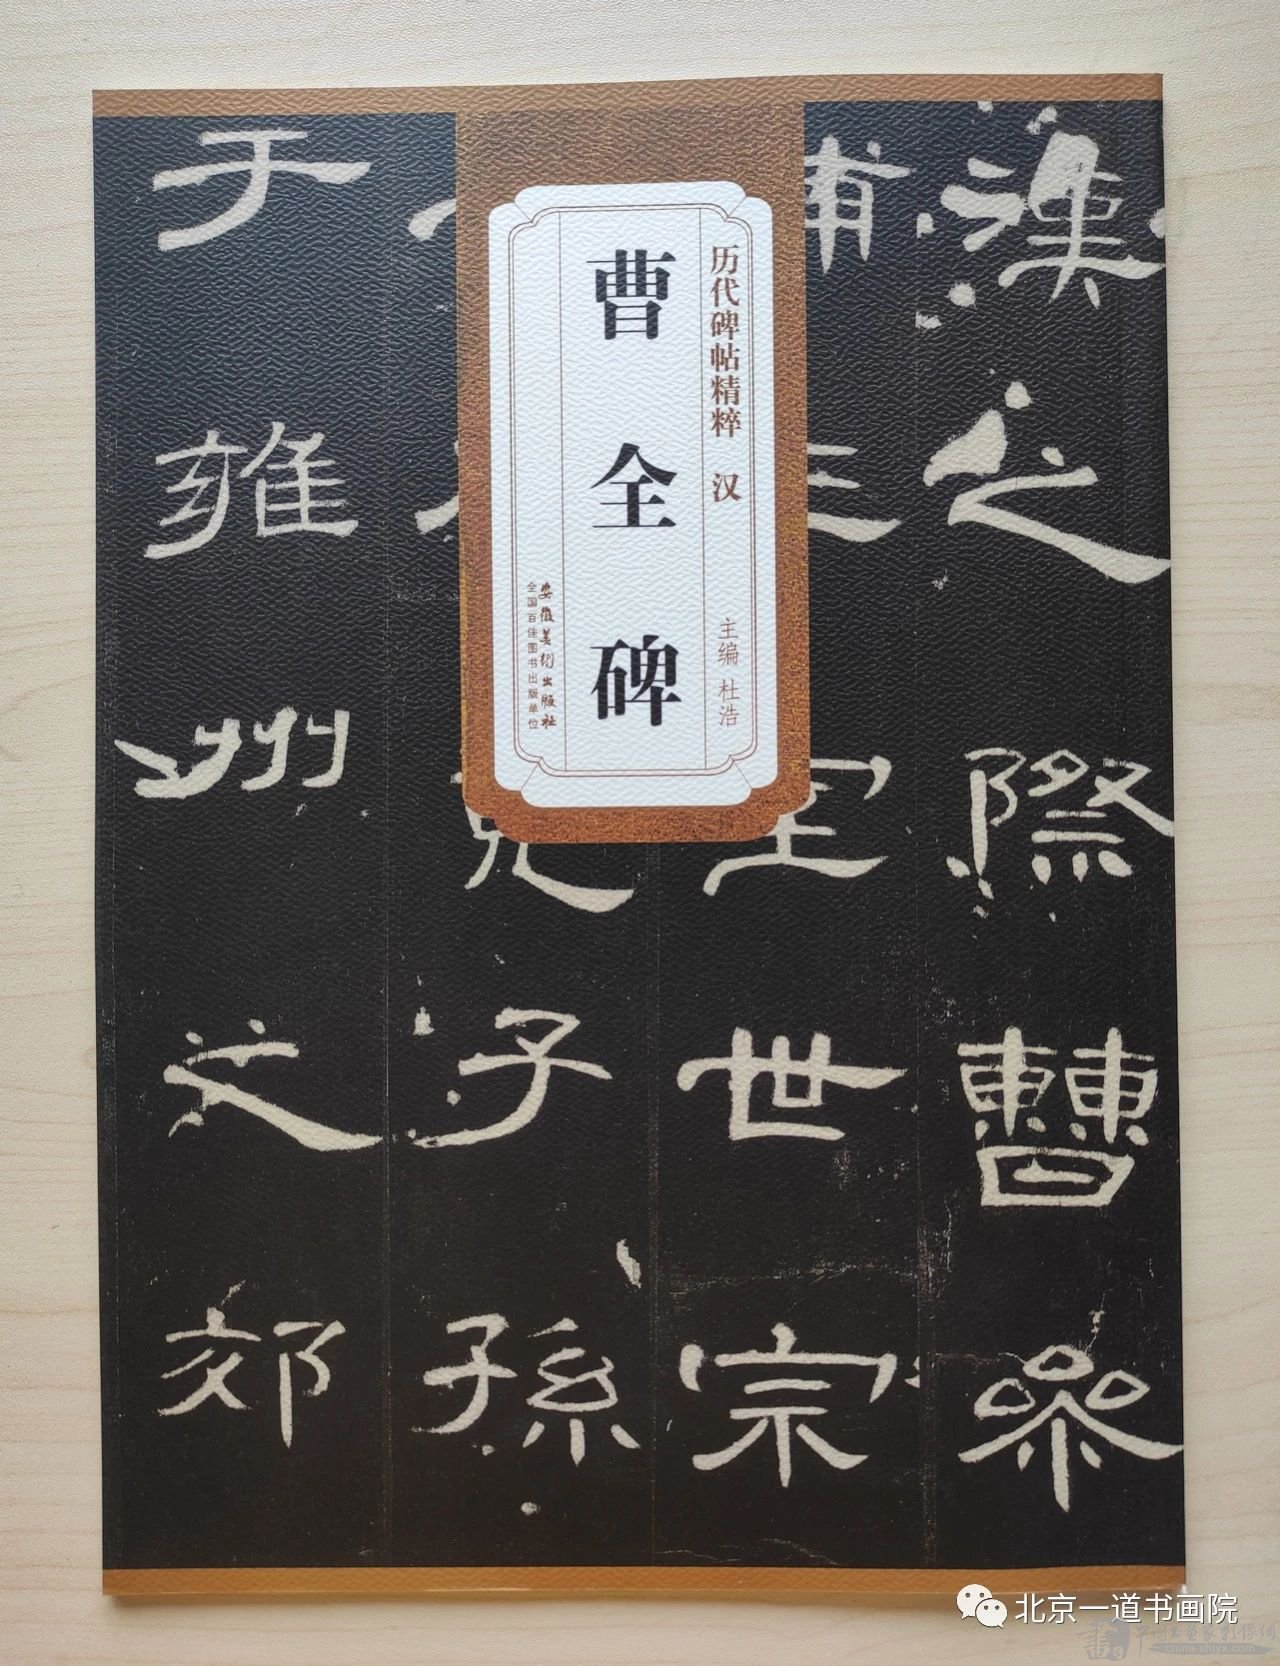 历代碑帖精粹 汉
主编 杜浩
曹全碑
安徽美术出版社
全国百佳图书出版单位
漢之際曹參
世宗
子孫
于雍州之郊
北京一道书画院
china-shjyx.com